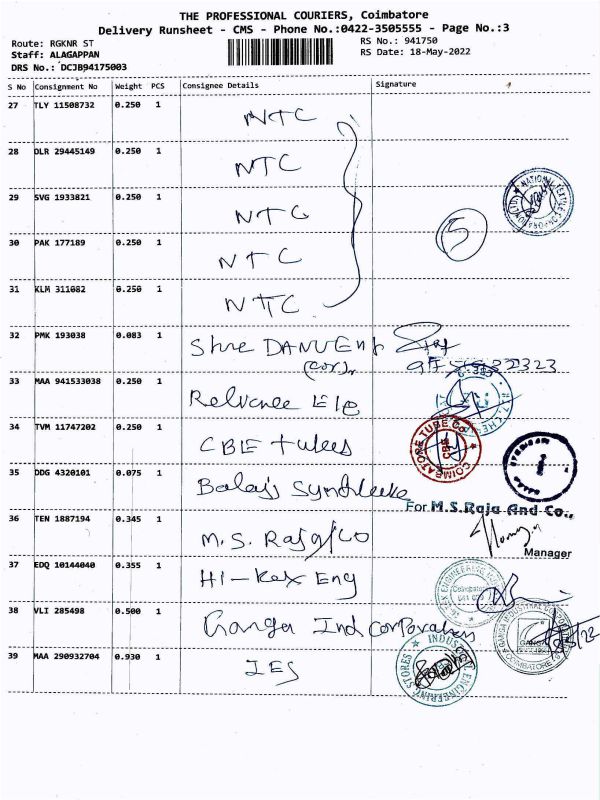 THE PROFESSIONAL COURIERS, Coimbatore
Delivery Runsheet - CMS - Phone No.:0422-3505555 - Page No.:3
Route: RGKNR ST
RS No.: 941750
Staff: ALAGAPPAN
RS Date: 18-May-2022
DRS No.: DCJB94175003
S No Consignment No Weight PCS Consignee Details Signature
27 TLY 11508732 0.250 1 NTC
28 DLR 29445149 0.250 1 NTC
29 SVG 1933821 0.250 1 NTC
NATIONAL TEXTILE
5
30 PAK 177189 0.250 1 NTC
31 KLM 311082 0.250 1 NTC
32 PMK 193038 0.083 1 Shre
33 MAA 941533038 0.250 1 Reliance Ele
34 TVM 11747202 0.250 1 CBE tubes
COIMBATORE TUBE Co.
CBE
35 DDG 4320101 0.075 1 Balaji
For M.S. Raja And Co.,
36 TEN 1887194 0.345 1 M.S. Raja/CO
Manager
37 EDQ 10144040 0.355 1 Hi-Rex Eng
38 VLI 285498 0.500 1 Ganga Ind Corporation
GANGA
39 MAA 290932704 0.930 1 IES
INDUSTRIAL ENGINEERING STORES